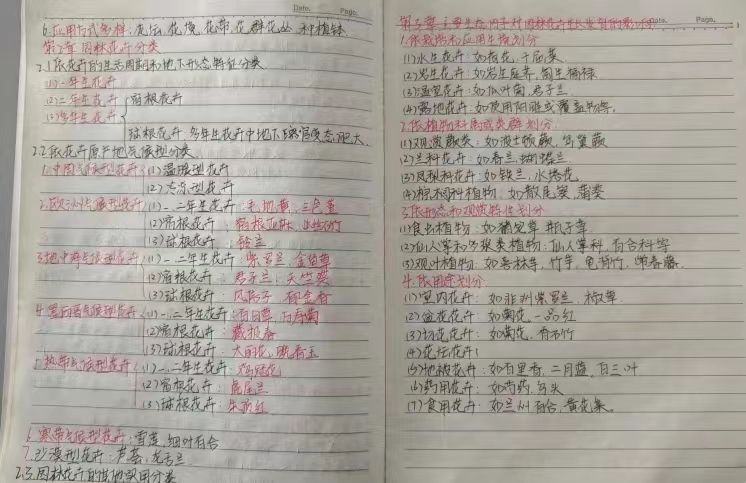 6.应用方式多样：花坛、花境、花带、花群花丛、种植钵
第2章 园林花卉分类
2.1依花卉的生活周期和地下形态特征分类
(1)一年生花卉
(2)二年生花卉
(3)多年生花卉
宿根花卉
球根花卉：多年生花卉中地下器官变态肥大
2.2依花卉原产地气候型分类
1.中国气候型花卉
(1)温暖型花卉
(2)冷凉型花卉
2.欧洲气候型花卉 (1)一、二年生花卉：毛地黄、三色堇
(2)宿根花卉：宿根亚麻
(3)球根花卉：铃兰
3.地中海气候型花卉 (1)一、二年生花卉：紫罗兰、金鱼草
(2)宿根花卉：君子兰、天竺葵
(3)球根花卉：风信子、郁金香
4.墨西哥气候型花卉 (1)一、二年生花卉：百日草、万寿菊
(2)宿根花卉：藏报春
(3)球根花卉：大丽花、晚香玉
5.热带气候型花卉 (1)一、二年生花卉：鸡冠花
(2)宿根花卉：虎尾兰
(3)球根花卉：朱顶红
6.寒带气候型花卉：雪莲、细叶百合
7.沙漠型花卉：芦荟、龙舌兰
2.3园林花卉的其他实用分类
Date. Page.
第3章 主要生态因子对园林花卉生长发育的影响
1.依栽培和应用生境划分
(1)水生花卉：如荷花、千屈菜
(2)岩生花卉：如岩生庭荠、匍生福禄
(3)温室花卉：如瓜叶菊、君子兰
(4)露地花卉：如使用阳畦或覆盖物等
2.依植物科属或类群划分
(1)观赏蕨类：如波士顿蕨、鸟巢蕨
(2)兰科花卉：如春兰、蝴蝶兰
(3)凤梨科花卉：如铁兰、水塔花
(4)棕榈科植物：如散尾葵、蒲葵
3.依形态和观赏特性划分
(1)食虫植物：如猪笼草、瓶子草
(2)仙人掌和多浆类植物：仙人掌科、百合科等
(3)观叶植物：如喜林芋、竹芋、龟背竹、常春藤
4.依用途划分
(1)室内花卉：如非洲紫罗兰、椒草
(2)盆花花卉：如菊花、一品红
(3)切花花卉：如菊花、香石竹
(4)花坛花卉：
(5)地被花卉：如百里香、二月蓝、白三叶
(6)药用花卉：如芍药、乌头
(7)食用花卉：如兰州百合、黄花菜。